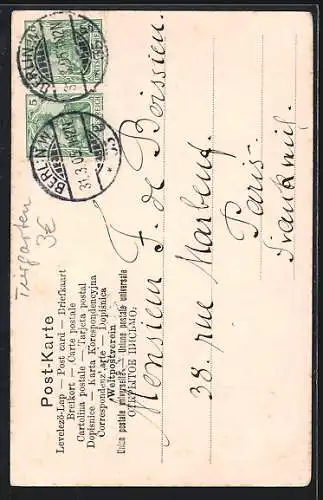 Post-Karte
Levelező-Lap — Post card — Briefkaart
Brefkort — Carte postale
Cartolina postale — Tarjeta postal
Dopisnice — Karta Korespondencyjna
Correspondenzkarte Dopisnica
Weltpostverein
Union postale universelle — Unione postale universale
ОТКРЫТОЕ ПИСЬМО.
Monsieur F. de Boissieu.
38. rue Marbeuf.
Paris.
Frankreich.
Tiergarten
3€
BERLIN
31.3.05
BERLIN.W
31.3.05
5
5